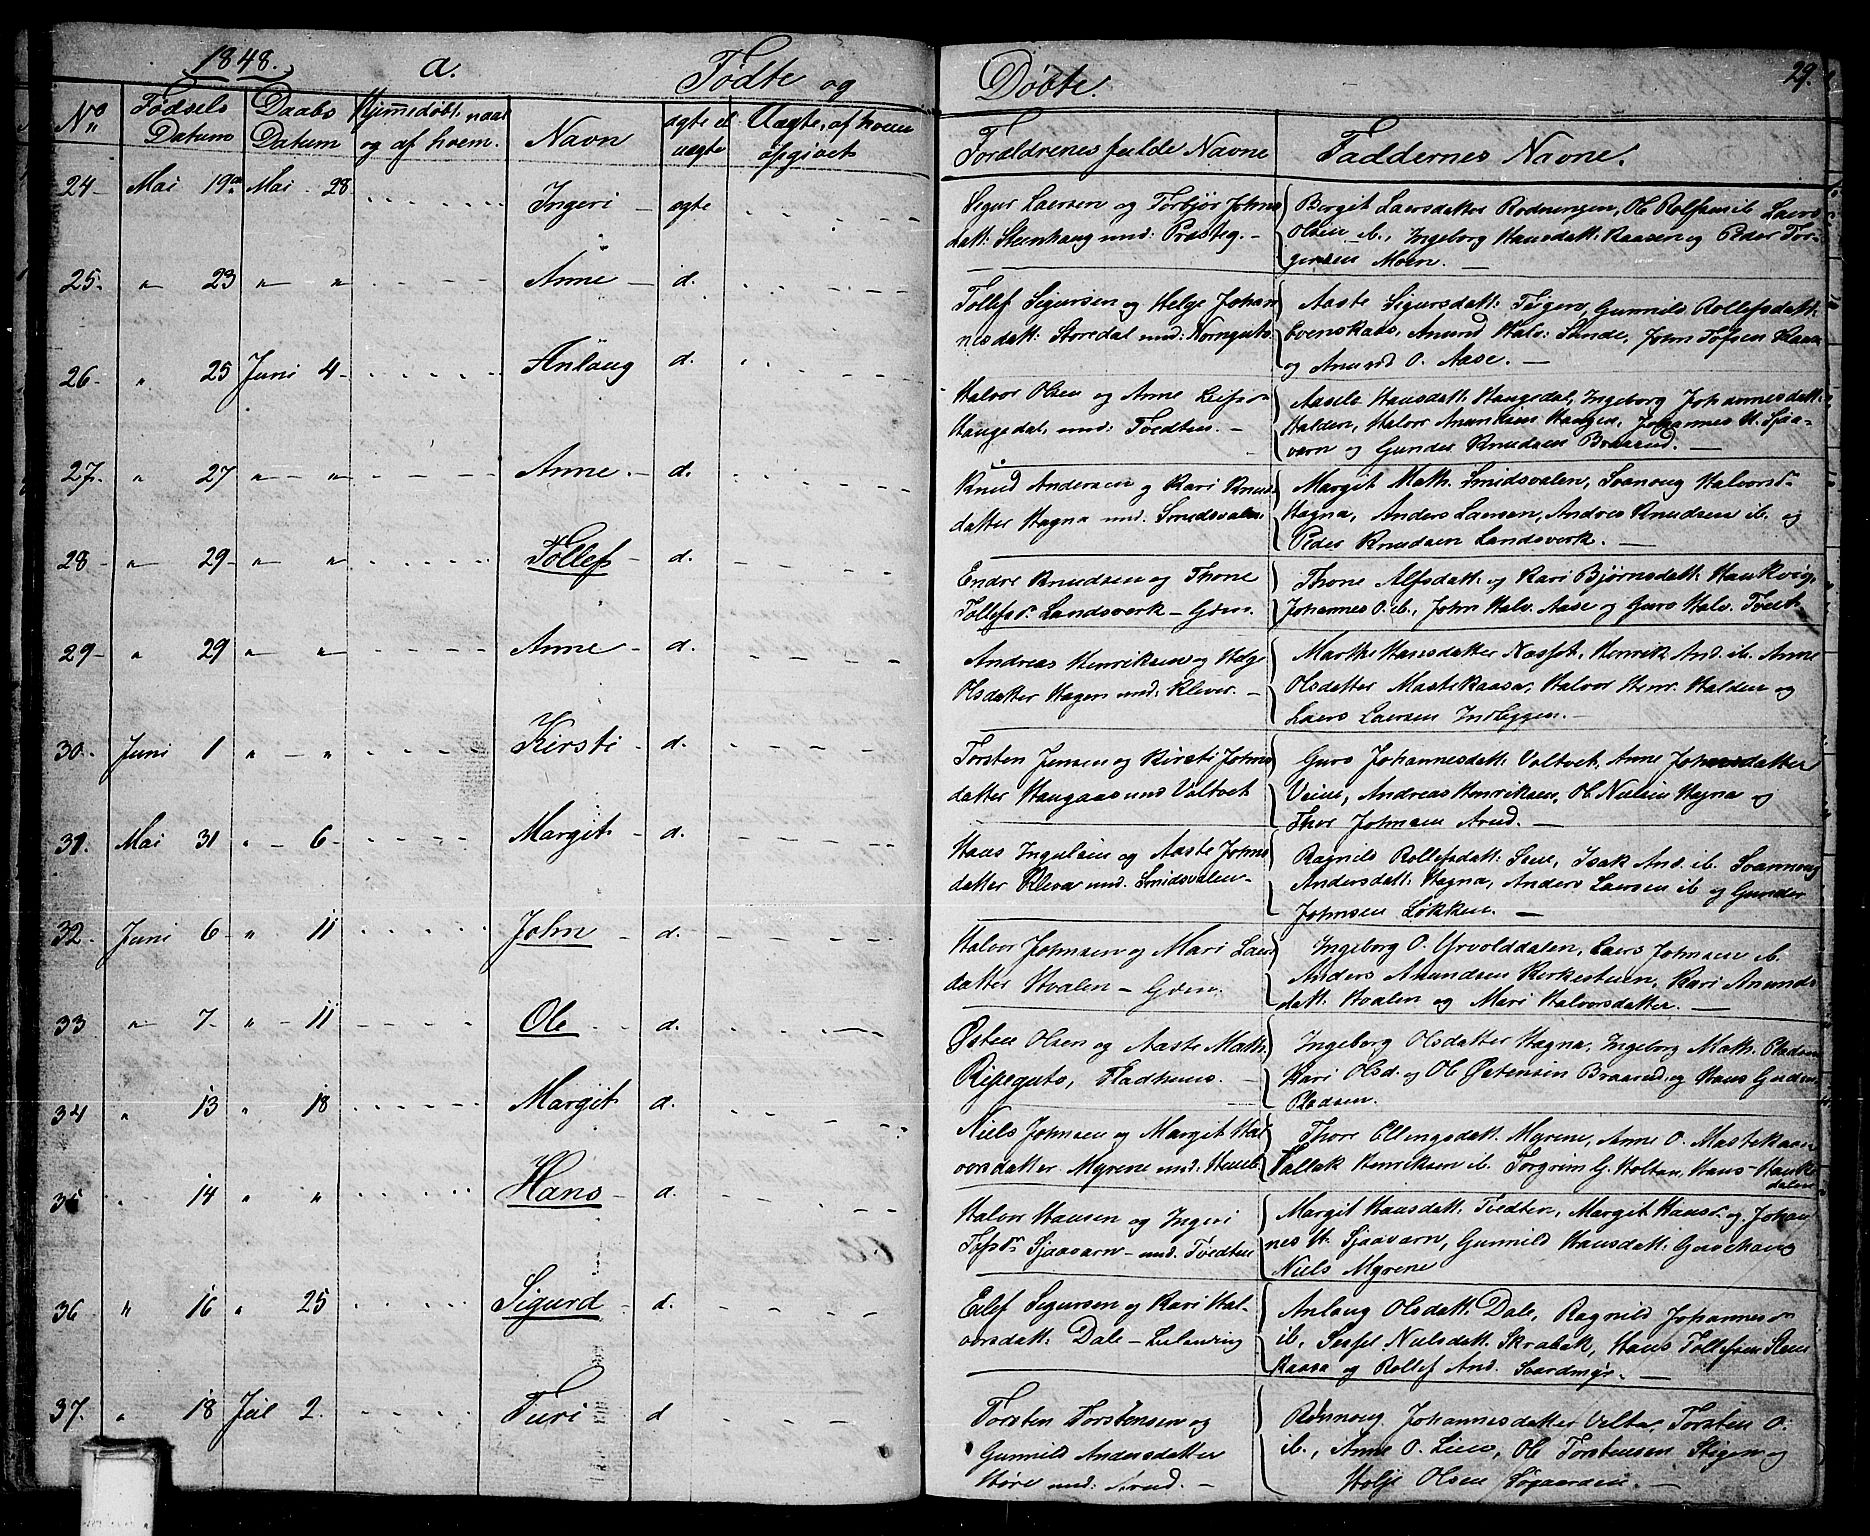 1848. a. Fødte og Døbte. 29.
No Fødsels Datum Daabs Datum Hjemedøbt, naar og af hvem. Navn ægte el uægte Uægte, af hvem opgivet Forældrenes fulde Navne Faddernes Navne.
24 Mai 19de Mai 28 Ingeri ægte
Sigur Laersen og Torbjør Johns
datt: Steenhaug und: Præsteg.
Birgit Laersdatter Rodningen, Ole Rolfsen ib. Laers
Olsen ib., Ingeborg Hansdatt: Kaasen og Peder Tor-
gersen Moen.
25 " 23 " " Anne d.
Tollef Sigursen og Helge Johan
nesdatt: Storedal und:
Aaste Sigursdatt: Teigen, Gunnild Rollefsdatt:
Anund Halv: Sinde, John Tofsen
og Anund O. Aase.
26 " 25 Juni 4 Anlaug d.
Halvor Olsen og Anne
Haugedal, und: Tvedten.
Hansdatt: Haugedal, Ingeborg Johannesdatt:
Halden, Halvor Haugen, Johannes H. Sjaa-
varn og Gunder Knudsen Braarud.
27 " 27 " " Anne. d.
Knud Andersen og Kari Knuds
datter Hagna und. Smidsvalen
Margit Math. Smidsvalen, Svanoug Halvorsdr
Hagna, Anders Laersen, Andres Knudsen ib. og
Peder Knudsen Landsverk.
28 " 29 " " Tollef d.
Endre Knudsen og Thone
Tollefsdr Landsverk
Thone Alfsdatt: og Kari Bjørnsdatt: Haukvig,
Johannes O. ib., John Halv. Aase og Guro Halv. Tvedt.
29 " 29 " " Anne d.
Andreas Henriksen og Helge
Olsdatter Hagen und: Klever.
Marthe Hansdatter Næsset, Henrik And. ib. Anne
Olsdatter Mastekaasa, Halvor Henr. Halden og
Laers Laersen Indleggen.
30 Juni 1 " " Kirsti d.
Torsten Jensen og Kirsti Johns
datter Haugaas und Valtvet
Guro Johannesdatt: Valtvet, Anne Johnsdatter
Veine, Andreas Henriksen, Ole Nielsen Hegna og
Thor Johnsen Arud.
31. Mai 31 " 6 Margit d.
Hans Ingulsen og Aaste Johns
datter Kleva und. Smidsvalen
Ragnild Rollefsdatt: Isak And. ib. Svannoug
Andersdatt: Hagna, Anders Laersen ib og Gunder
Johnsen Løkken.
32. Juni 6 " 11 John d.
Halvor Johnsen og Mari Laers
datter Hvalen
Ingeborg O. Yrvolddalen, Laers Johnsen ib.
Anders Anundsen Kirkesteien, Kari Anunds
datt: Hvalen og Mari Halvorsdatter.
33 " 7 " 11 Ole d.
Østen Olsen og Aaste Math.
Ripeguto, Fladhuus.
Ingeborg Olsdatter Hagna, Ingeborg Math. Pladsen
Kari Olsd. og Ole Østensen Braarud, og Hans Gunders
Pladsen.
34 " 13 " 18 Margit d.
Niels Johnsen og Margit Hal
vorsdatter Myrene und:
Thore Ellingsdatt. Myrene, Anne O. Mastekaasa
Tallak Henriksen ib. Torgrim G. Holtan, Hans Hauk-
dalen
35 " 14 " " Hans d.
Halvor Hansen og Ingeri
Tofsdr Sjaavarn und: Tvedten
Margit Hansdatt: Tvedten, Margit Hansdr og Johan
nes H. Sjaavarn, Gunnild Hansdatt:
Niels Myrene
36 " 16 " 25 Sigurd d.
Eilef Sigursen og Kari Hal-
vorsdatt: Dale
Anlaug Olsdatt: Dale, Ragnild Johannesdr
ib., Nielsdatt: Skrabak, Hans Tollefsen Steen
Kaasa og Rollef And. Svardmyr.
37. " 18 Jul 2. Turi d
Torsten Torstensen og
Gunnild Andersdatter
und: Arud.
Rønnoug Johannesdatter Velta, Torsten O.
ib., Anne O. Lien, Ole Torstensen og
Holje Olsen Søgaarden.